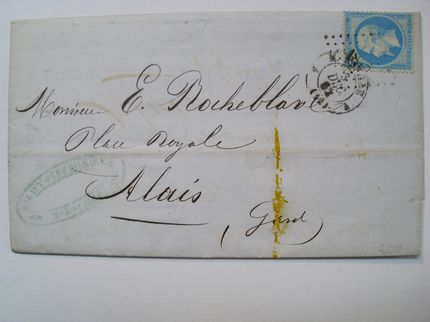 Monsieur E. Rocheblave
Place Royale
Alais
Gard